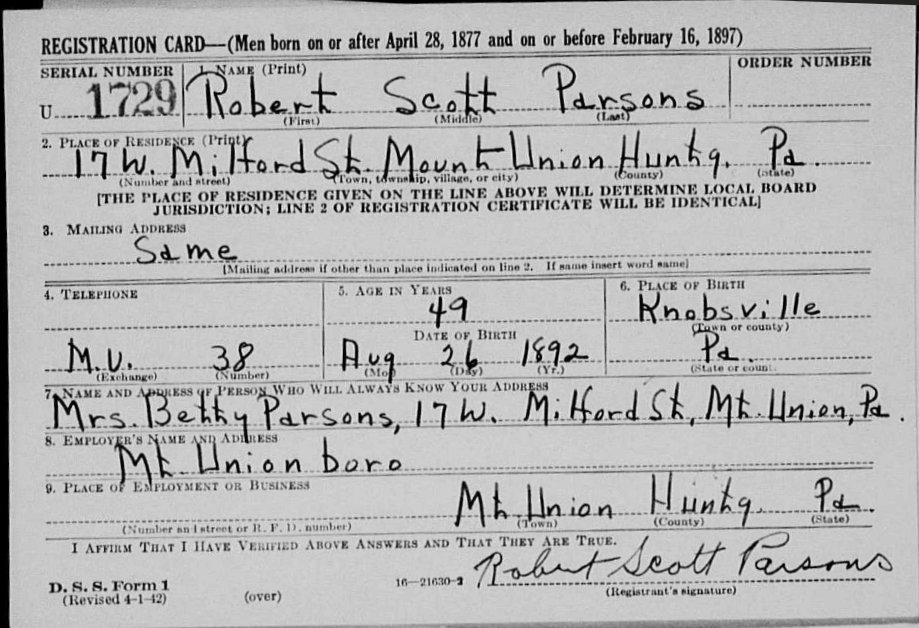 REGISTRATION CARD—(Men born on or after April 28, 1877 and on or before February 16, 1897)
SERIAL NUMBER 1. NAME (Print) ORDER NUMBER
U 1729 Robert Scott Parsons
(First) (Middle) (Last)
2. PLACE OF RESIDENCE (Print)
17 W. Milford St. Mount Union Huntg. Pa.
(Number and street) (Town, township, village, or city) (County) (State)
[THE PLACE OF RESIDENCE GIVEN ON THE LINE ABOVE WILL DETERMINE LOCAL BOARD
JURISDICTION; LINE 2 OF REGISTRATION CERTIFICATE WILL BE IDENTICAL]
3. MAILING ADDRESS
Same
[Mailing address if other than place indicated on line 2. If same insert word same]
4. TELEPHONE 5. AGE IN YEARS 6. PLACE OF BIRTH
49 Knobsville
DATE OF BIRTH (Town or county)
M.U. 38 Aug 26 1892 Pa.
(Exchange) (Number) (Mo.) (Day) (Yr.) (State or country)
7. NAME AND ADDRESS OF PERSON WHO WILL ALWAYS KNOW YOUR ADDRESS
Mrs. Betty Parsons, 17 W. Milford St, Mt. Union, Pa.
8. EMPLOYER'S NAME AND ADDRESS
Mt. Union boro
9. PLACE OF EMPLOYMENT OR BUSINESS
Mt. Union Huntg. Pa
(Number and street or R. F. D. number) (Town) (County) (State)
I AFFIRM THAT I HAVE VERIFIED ABOVE ANSWERS AND THAT THEY ARE TRUE.
Robert Scott Parsons
D. S. S. Form 1 16—21630-2 (Registrant's signature)
(Revised 4-1-42) (over)